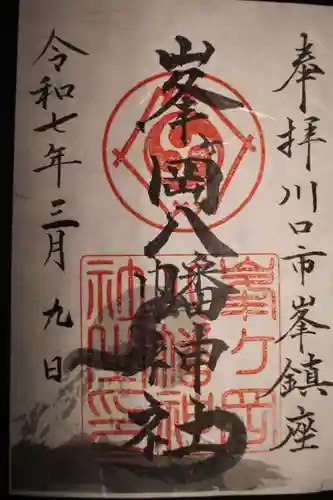 奉拝川口市峯鎮座
峯岡八幡神社
峯ヶ岡
八幡神社
神社印
令和七年三月九日